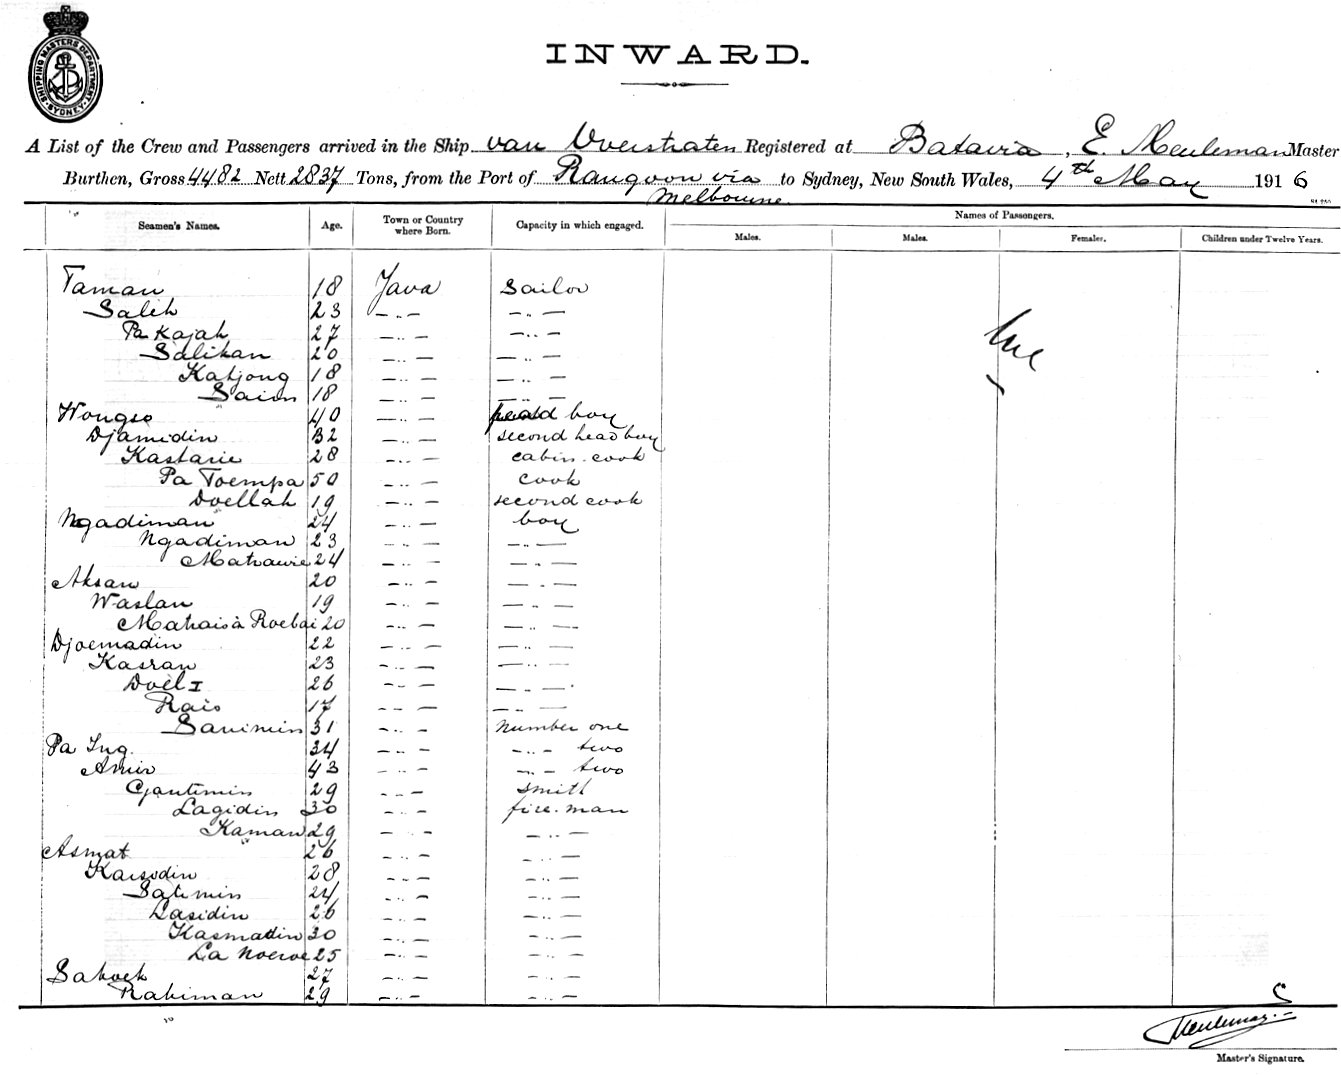 SHIPPING MASTERS DEPARTMENT SYDNEY
INWARD.
A List of the Crew and Passengers arrived in the Ship van Overstraten Registered at Batavia, E. Meuleman Master
Burthen, Gross 4482 Nett 2837 Tons, from the Port of Rangoon via to Sydney, New South Wales, 4th May 1916
Melbourne.
Names of Passengers.
Seamen's Names. Age. Town or Country where Born. Capacity in which engaged. Males. Males. Females. Children under Twelve Years.
Taman 18 Java Sailor
Saleh 23 – „ – – „ –
Pa Kajah 27 – „ – – „ –
Salikan 20 – „ – – „ –
Katjong 18 – „ – – „ –
Saion 18 – „ – – „ –
Wongso 40 – „ – head boy
Djamidin 32 – „ – second head boy
Kastarie 28 – „ – cabin-cook
Pa Toempa 50 – „ – cook
Doellah 19 – „ – second cook
Ngadiman 24 – „ – boy
Ngadiman 23 – „ – – „ –
Matrawie 24 – „ – – „ –
Aksan 20 – „ – – „ –
Waslan 19 – „ – – „ –
Matrais à Roebai 20 – „ – – „ –
Djoemadin 22 – „ – – „ –
Kasran 23 – „ – – „ –
Doel I 26 – „ – – „ –
Rais 17 – „ – – „ –
Sarimin 31 – „ – number one
Pa Ing. 34 – „ – – „ – two
Amir 43 – „ – – „ – two
Gantimin 29 – „ – smith
Lagidin 30 – „ – fire-man
Kaman 29 – „ – – „ –
Asmat 26 – „ – – „ –
Karsodin 28 – „ – – „ –
Satimin 24 – „ – – „ –
Lasidin 26 – „ – – „ –
Kasmadin 30 – „ – – „ –
La Noeroe 25 – „ – – „ –
Saboek 27 – „ – – „ –
Rakiman 29 – „ – – „ –
Meuleman
Master's Signature.